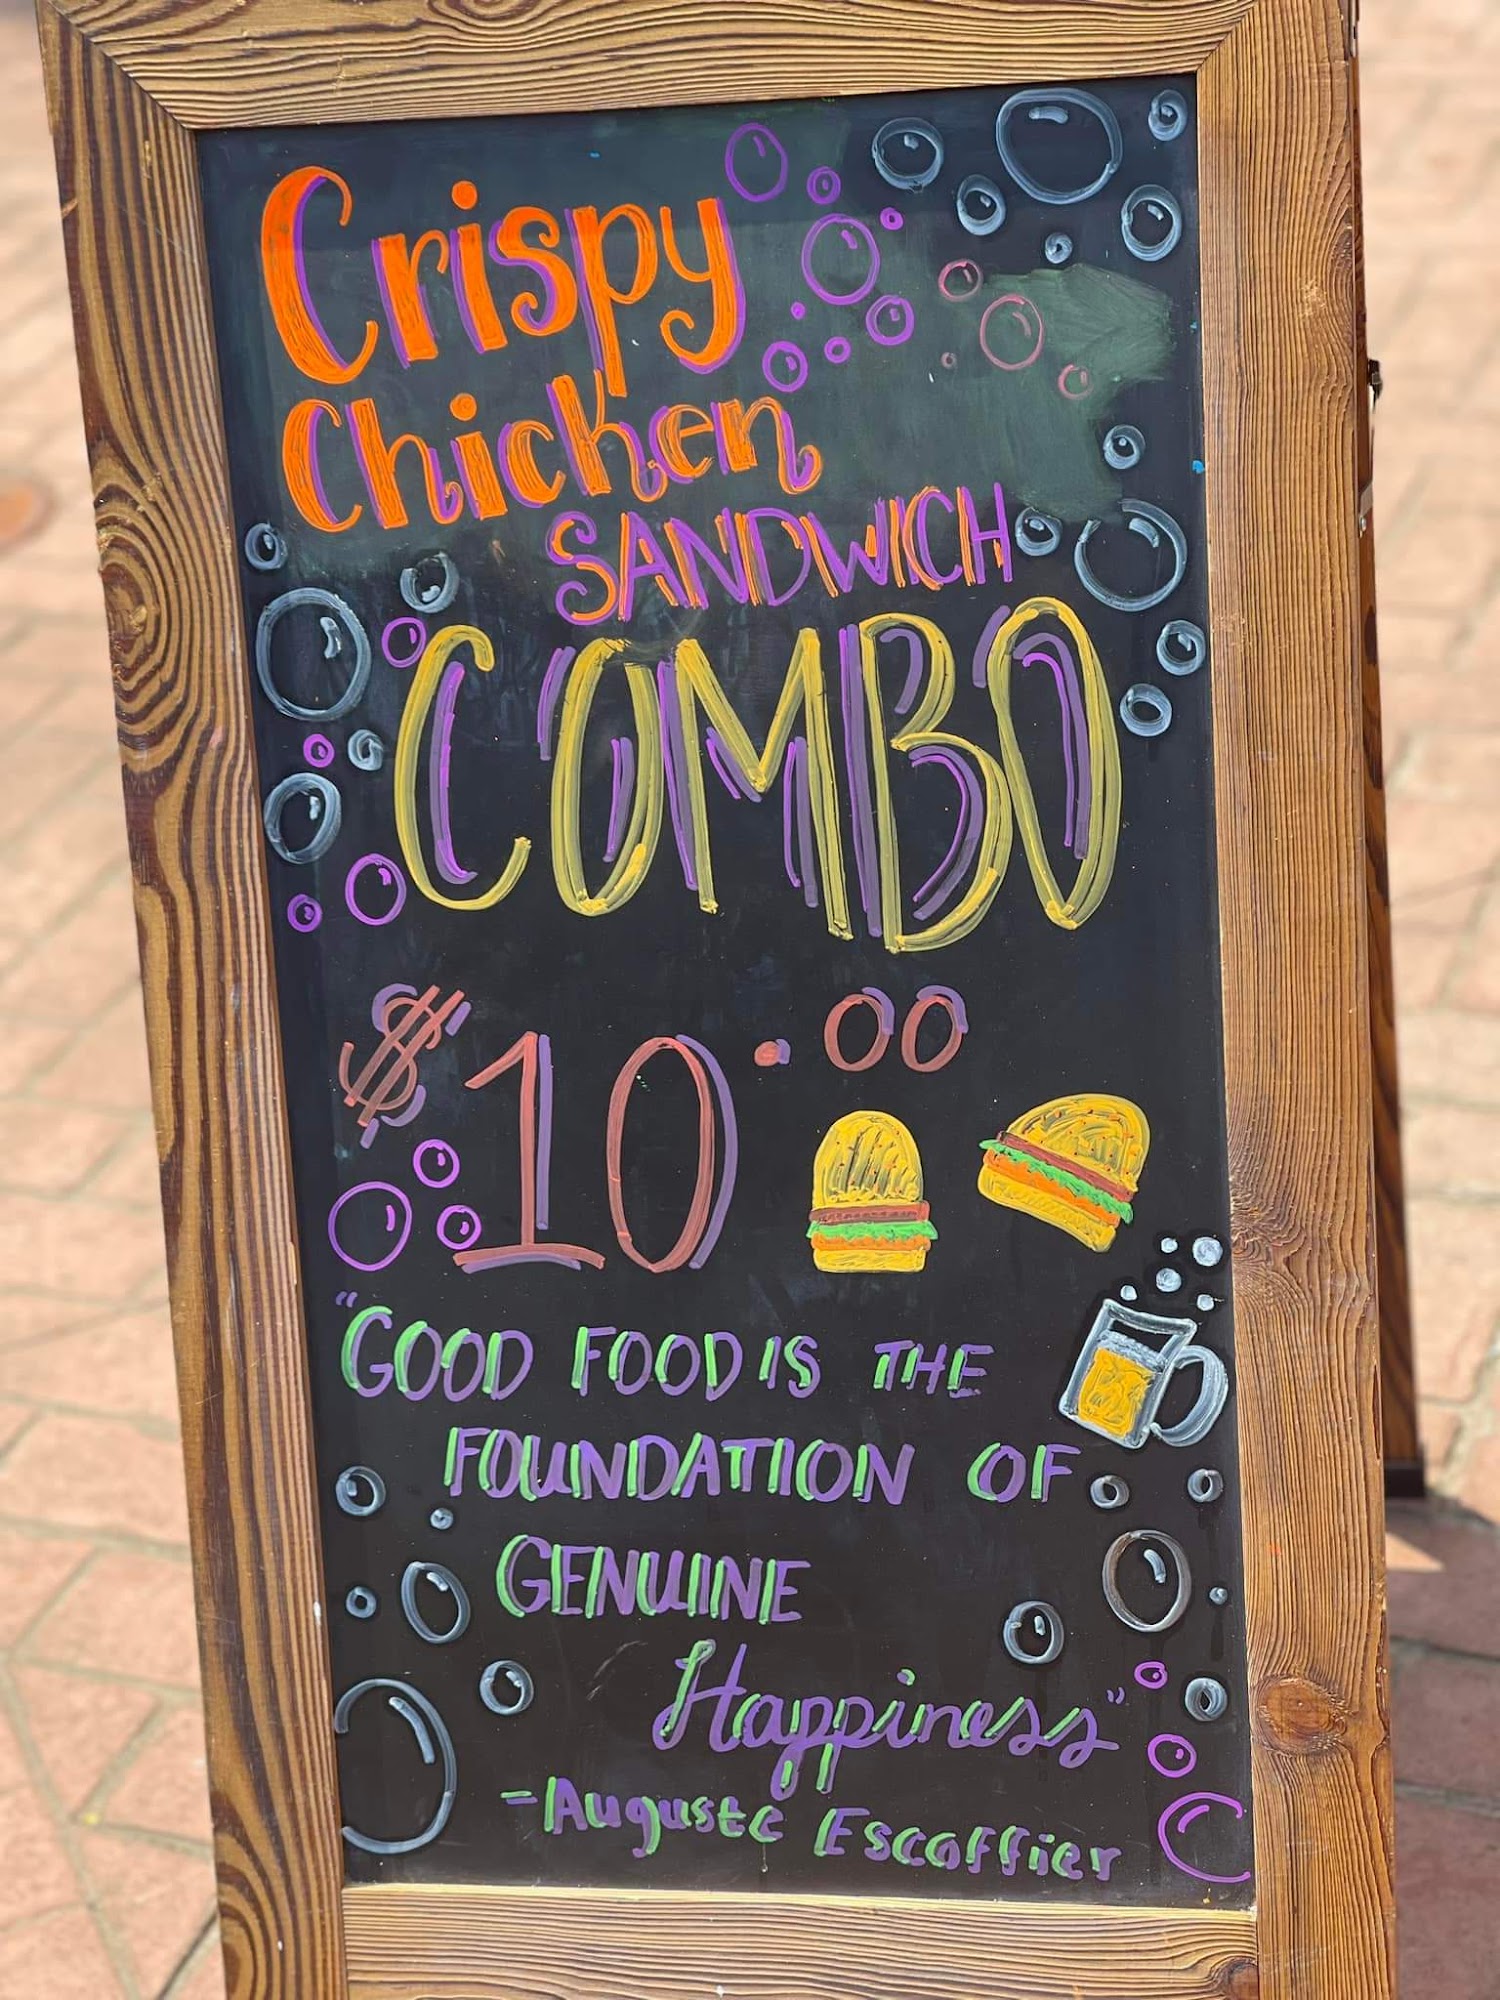 Crispy
Chicken
SANDWICH
COMBO
$10.00
"GOOD FOOD IS THE
FOUNDATION OF
GENUINE
Happiness"
-Auguste Escoffier